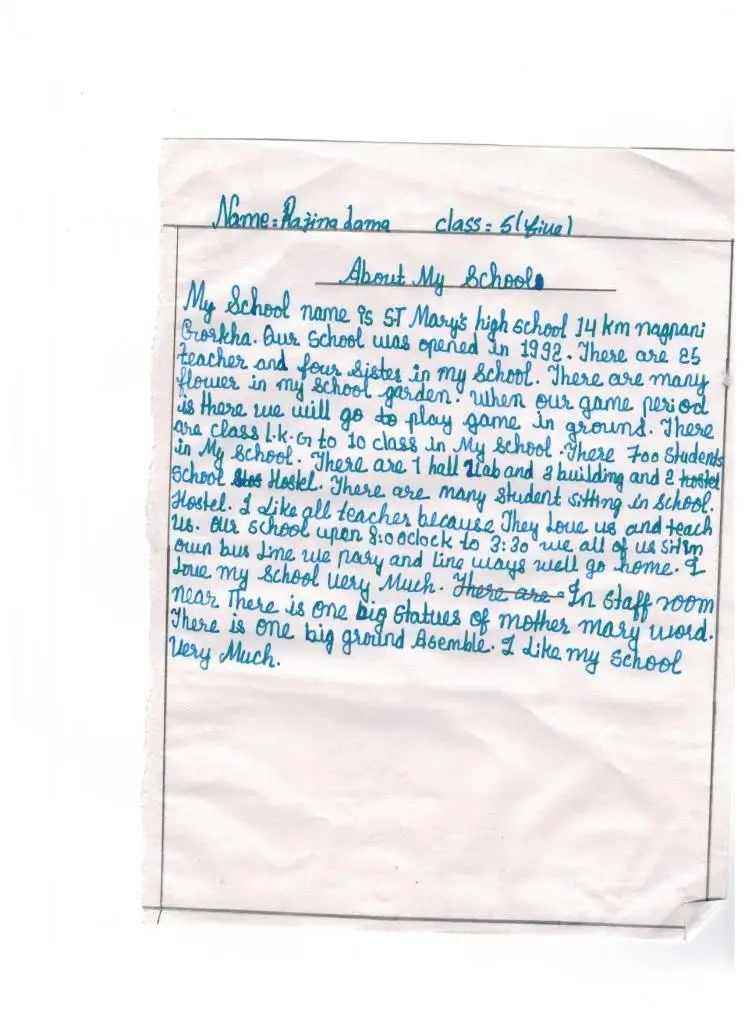 Name = Rajina Lama class = 5 (five)
About My School
My School name is S.T Mary's high school 14 km nagpani
Gorkha. Our School was opened in 1992. There are 25
teacher and four sister in my School. There are many
flower in my school garden. when our game period
is there we will go to play game in ground. There
are class L.K.G to 10 class in My School. There 700 students
in My School. There are 1 hall 1 lab and 3 building and 2 hostel
School Hostel. There are many student sitting in school.
Hostel. I Like all teacher because They Love us and teach
us. Our school upen 8:0 oclock to 3:30 we all of us sit in
own bus Line we pary and line ways well go home. I
Love my School very Much. There are In staff room
near There is one big Statues of mother mary word.
There is one big ground Asemble. I Like my School
Very Much.